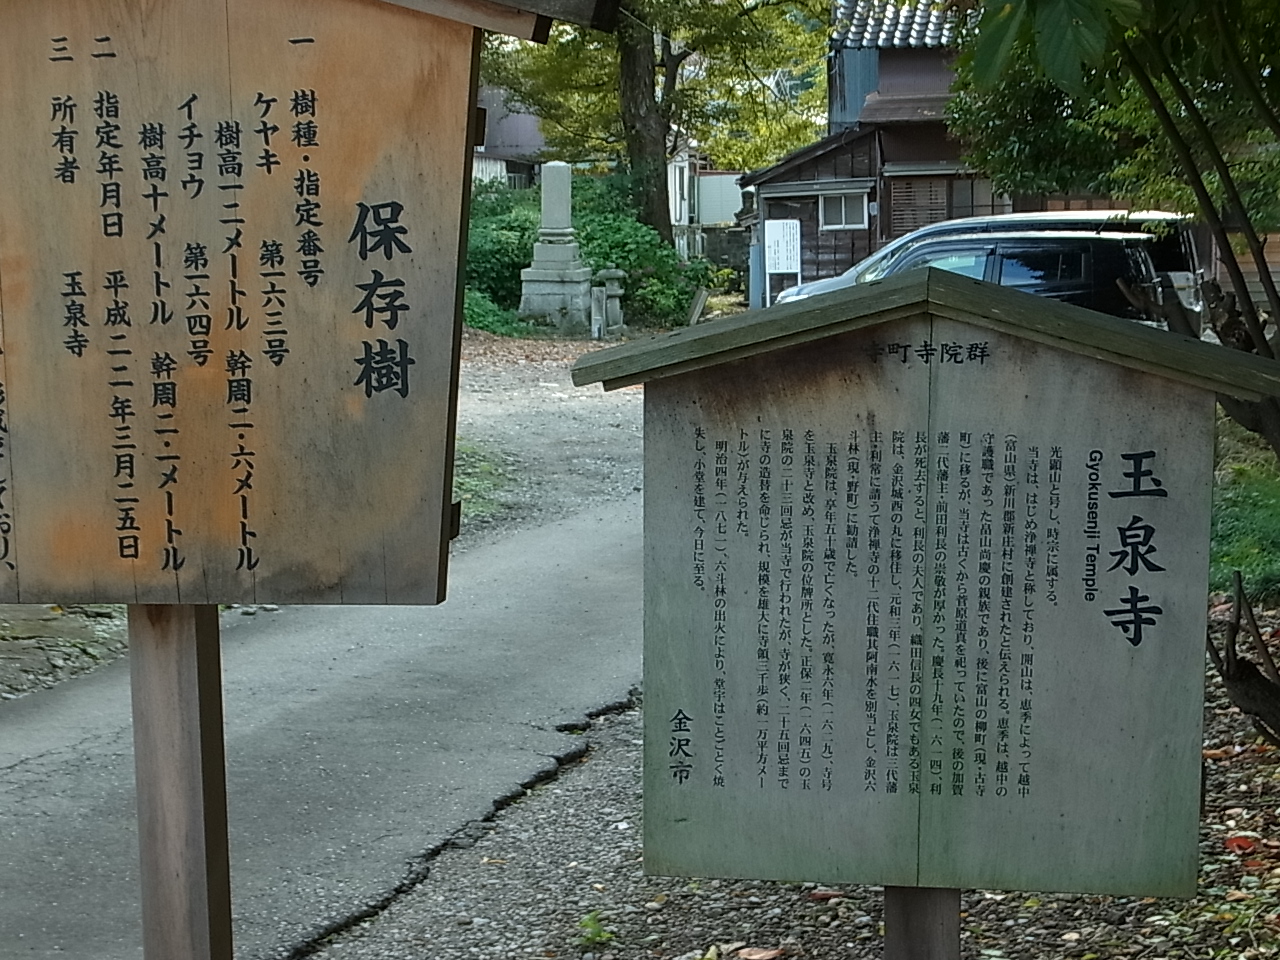 保存樹
一 樹種・指定番号
ケヤキ 第一六三号
樹高一二メートル 幹周二・六メートル
イチョウ 第一六四号
樹高十メートル 幹周二・二メートル
二 指定年月日 平成二二年三月二五日
三 所有者 玉泉寺
寺町寺院群
玉泉寺
Gyokusenji Temple
光顕山と号し、時宗に属する。
当寺は、はじめ浄禅寺と称しており、開山は、恵季によって越中
(富山県)新川郡新庄村に創建されたと伝えられる。恵季は、越中の
守護職であった畠山尚慶の親族であり、後に富山の柳町(現・古寺
町)に移るが、当寺は古くから菅原道真を祀っていたので、後の加賀
藩二代藩主・前田利長の崇敬が厚かった。慶長十九年(一六一四)、利
長が死去すると、利長の夫人であり、織田信長の四女でもある玉泉
院は、金沢城西の丸に移住し、元和三年(一六一七)、玉泉院は三代藩
主・利常に請うて浄禅寺の十二代住職其阿南水を別当とし、金沢六
斗林(現・野町)に勧請した。
玉泉院は、享年五十歳で亡くなったが、寛永六年(一六二九)、寺号
を玉泉寺と改め、玉泉院の位牌所とした。正保二年(一六四五)の玉
泉院の二十三回忌が当寺で行われたが、寺が狭く、二十五回忌まで
に寺の造替を命じられ、規模を雄大に寺領三千歩(約一万平方メー
トル)が与えられた。
明治四年(一八七一)、六斗林の出火により、堂宇はことごとく焼
失し、小堂を建て、今日に至る。
金沢市